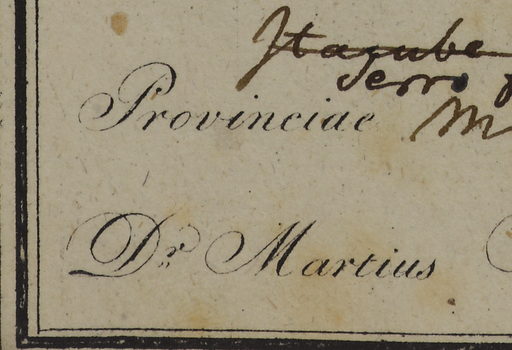 Itacube
Serro
Provinciae M
Dr. Martius